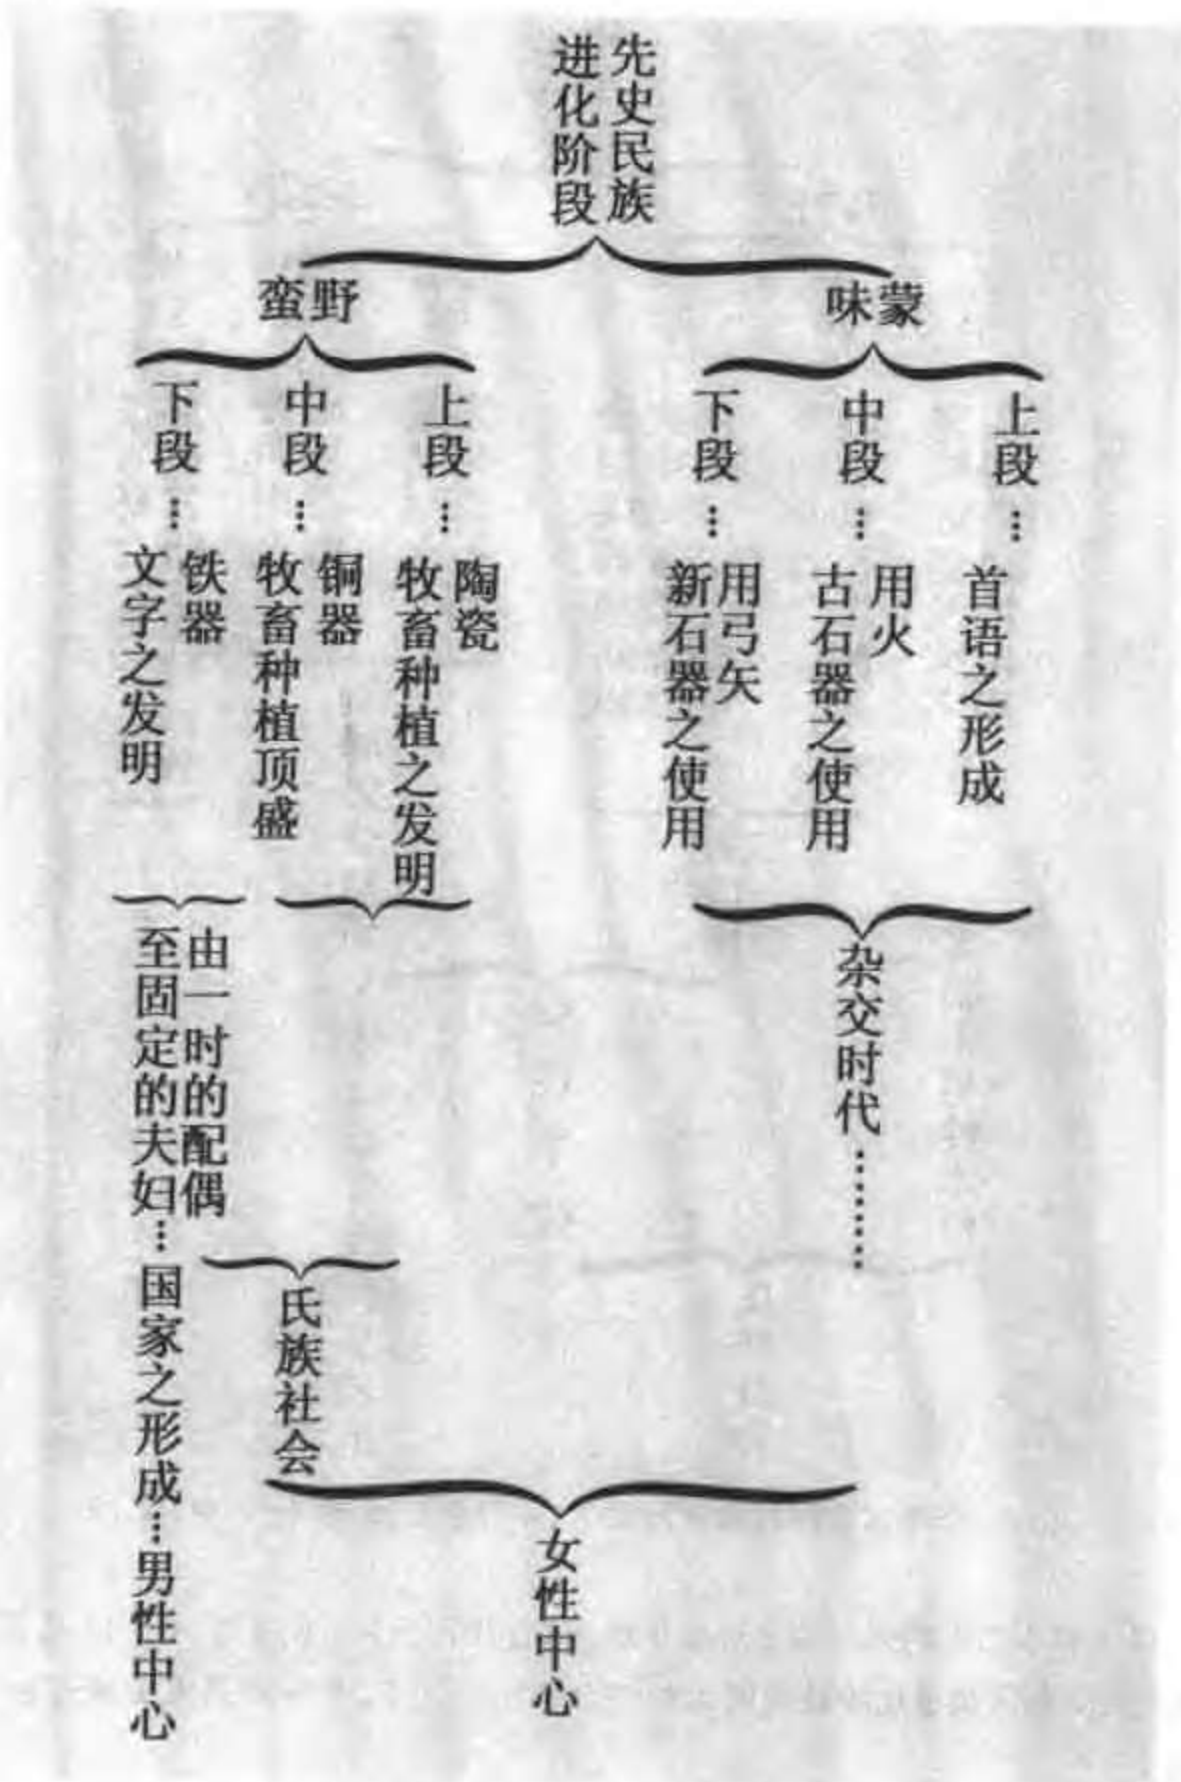 先史民族
进化阶段
蒙味
上段…
首语之形成
中段…
用火
古石器之使用
下段…
用弓矢
新石器之使用
杂交时代……
野蛮
上段…
陶瓷
牧畜种植之发明
中段…
铜器
牧畜种植顶盛
下段…
铁器
文字之发明
氏族社会
女性中心
由一时的配偶
至固定的夫妇…国家之形成…男性中心